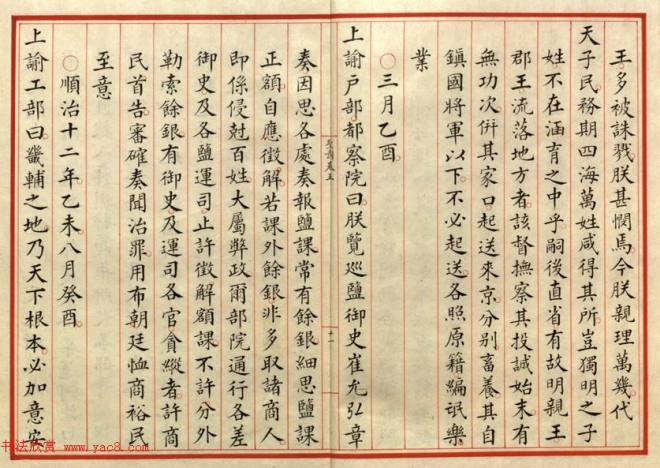 王多被誅戮朕甚憫焉今朕親理萬幾代
天子民務期四海萬姓咸得其所豈獨明之子
姓不在涵育之中乎嗣後直省有故明親王
郡王流落地方者該督撫察其投誠始末有
無功次併其家口起送來京分别畜養其自
鎮國將軍以下不必起送各照原籍編氓樂
業
○三月乙酉
上諭户部都察院曰朕覽巡鹽御史崔允弘章
聖訓卷五
十一
奏因思各處奏報鹽課常有餘銀細思鹽課
正額自應徵解若課外餘銀非多取諸商人
即係侵尅百姓大屬弊政爾部院通行各差
御史及各鹽運司止許徵解額課不許分外
勒索餘銀有御史及運司各官貪縱者許商
民首告審確奏聞治罪用布朝廷恤商裕民
至意
○順治十二年乙未八月癸酉
上諭工部曰畿輔之地乃天下根本必加意安
书法欣赏 www.yac8.com